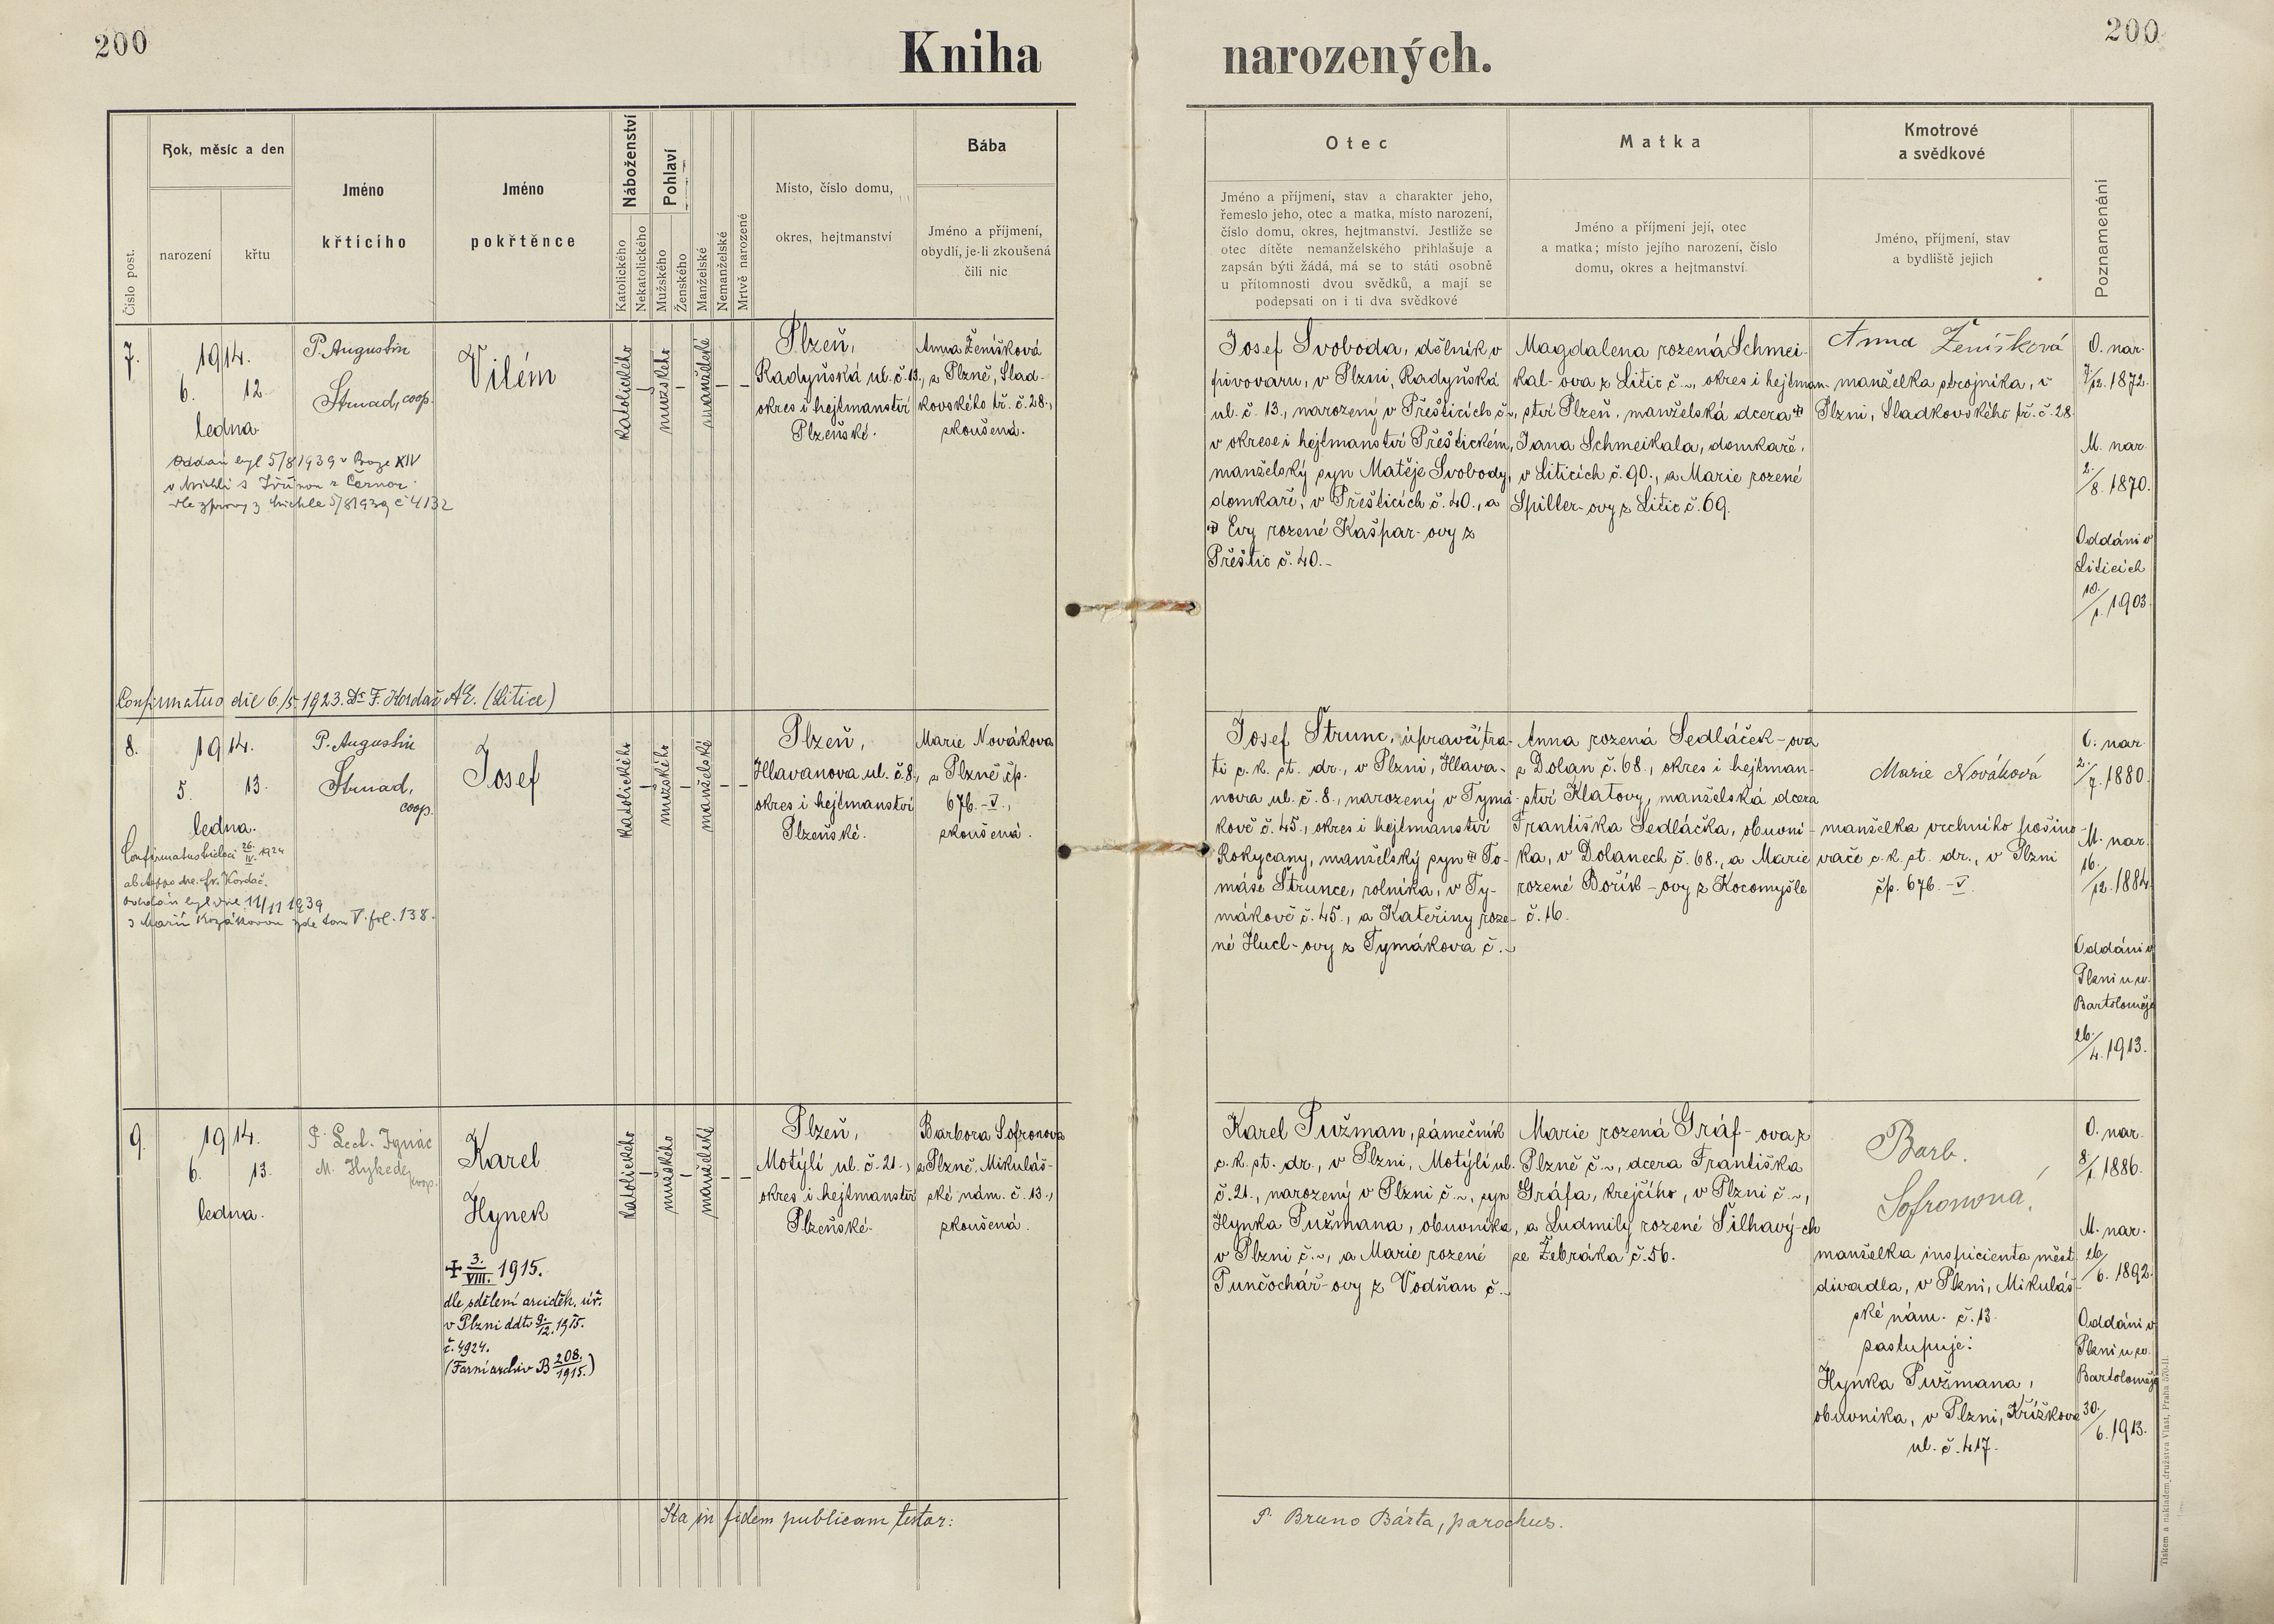 200
Kniha
narozených.
200
Číslo post.
Rok, měsíc a den
narození
křtu
Jméno
křtícího
Jméno
pokřtěnce
Náboženství
Katolického
Nekatolického
Pohlaví
Mužského
Ženského
Manželské
Nemanželské
Mrtvě narozené
Místo, číslo domu,
okres, hejtmanství
Bába
Jméno a příjmení,
obydlí, je-li zkoušená
čili nic
Otec
Jméno a příjmení, stav a charakter jeho,
řemeslo jeho, otec a matka, místo narození,
číslo domu, okres, hejtmanství. Jestliže se
otec dítěte nemanželského přihlašuje a
zapsán býti žádá, má se to státi osobně
u přítomnosti dvou svědků, a mají se
podepsati on i ti dva svědkové
Matka
Jméno a příjmení její, otec
a matka; místo jejího narození, číslo
domu, okres a hejtmanství
Kmotrové
a svědkové
Jméno, příjmení, stav
a bydliště jejich
Poznamenání
7.
1914.
6. 12.
ledna.
P. Augustin
Strnad, coop.
Vilém
katolického
mužského
manželské
Plzeň,
Radyňská ul. č. 13.,
okres i hejtmanství
Plzeňské.
Anna Ženíšková
z Plzně, Slad-
kovského tř. č. 28.,
zkoušená.
Oddán byl 5/8 1939 v Praze XIV
v Michli s Jiřinou r. Černou
dle zprávy z Michle 5/8 1939 č 4132
Confirmatus die 6./5. 1923. Dr. F. Kordač AE. (Litice)
Josef Svoboda, dělník v
pivovaru, v Plzni, Radyňská
ul. č. 13., narozený v Přešticích č. ~,
v okrese i hejtmanství Přeštickém,
manželský syn Matěje Svobody,
domkáře, v Přešticích č. 40., a
Evy rozené Kašpar-ovy z
Přeštic č. 40.-
Magdalena rozená Schmei-
kal-ova z Litic č. ~, okres i hejtman-
ství Plzeň, manželská dcera
Jana Schmeikala, domkáře,
v Liticích č. 90., a Marie rozené
Spiller-ovy z Litic č. 69.
Anna Ženíšková
manželka strojníka, v
Plzni, Sladkovského tř. č. 28.
O. nar.
7./12. 1872.
M. nar.
2./8. 1870.
Oddáni v
Liticích
10./1. 1903.
8.
1914.
5. 13.
ledna.
P. Augustin
Strnad,
coop.
Josef
katolického
mužského
manželské
Plzeň,
Hlavanova ul. č. 8.,
okres i hejtmanství
Plzeňské.
Marie Nováková
z Plzně čp.
676.-V.,
zkoušená.
Confirmatus 26./IV. 1924
Fr. Kordač.
oddán byl dne 11/11 1939
s Marií Kozákovou zde tom V. fol. 138.
Josef Štrunc, úpravčí tra-
ti c. k. st. dr., v Plzni, Hlava-
nova ul. č. 8., narozený v Tymá-
kově č. 45., okres i hejtmanství
Rokycany, manželský syn To-
máše Štrunce, rolníka, v Ty-
mákově č. 45., a Kateřiny roze-
né Hucl-ovy z Tymákova č. ~
Anna rozená Sedláček-ova
z Dolan č. 68., okres i hejtman-
ství Klatovy, manželská dcera
Františka Sedláčka, obuvní-
ka, v Dolanech č. 68., a Marie
rozené Bořík-ovy z Kocomyšle
č. 16.
Marie Nováková
manželka vrchního pošino-
vače c. k. st. dr., v Plzni
čp. 676.-V.
O. nar.
2./7. 1880.
M. nar.
16./12. 1884.
Oddáni v
Plzni u sv.
Bartoloměje
26./4. 1913.
9.
1914.
6. 13.
ledna.
P. Lect. Ignác
M. Hykede, coop.
Karel
Hynek
katolického
mužského
manželské
✝ 3./VIII. 1915.
dle sdělení arciděk. úř.
v Plzni ddto 9./12. 1915.
č. 4924.
(Farní archiv B 208./1915.)
Plzeň,
Motýlí ul. č. 21.,
okres i hejtmanství
Plzeňské.
Barbora Sofronova
z Plzně, Mikuláš-
ské nám. č. 13.,
zkoušená.
Karel Pužman, zámečník
c. k. st. dr., v Plzni, Motýlí ul.
č. 21., narozený v Plzni č. ~, syn
Hynka Pužmana, obuvníka,
v Plzni č. ~, a Marie rozené
Punčochář-ovy z Vodňan č. ~
Marie rozená Gráf-ova z
Plzně č ~, dcera Františka
Gráfa, krejčího, v Plzni č ~,
a Ludmily rozené Šilhavý-ch
ze Žebráka č. 56.
Barb.
Sofronová,
manželka inspicienta měst.
divadla, v Plzni, Mikuláš-
ské nám. č. 13.
zastupuje:
Hynka Pužmana,
obuvníka, v Plzni, Křížkova
ul. č. 417.
O. nar.
8./1. 1886.
M. nar.
26./6. 1892.
Oddáni v
Plzni u sv.
Bartoloměje
30./6. 1913.
Ita in fidem publicam testor:
P. Bruno Bárta, parochus.
Tiskem a nákladem družstva Vlast, Praha 570-II.